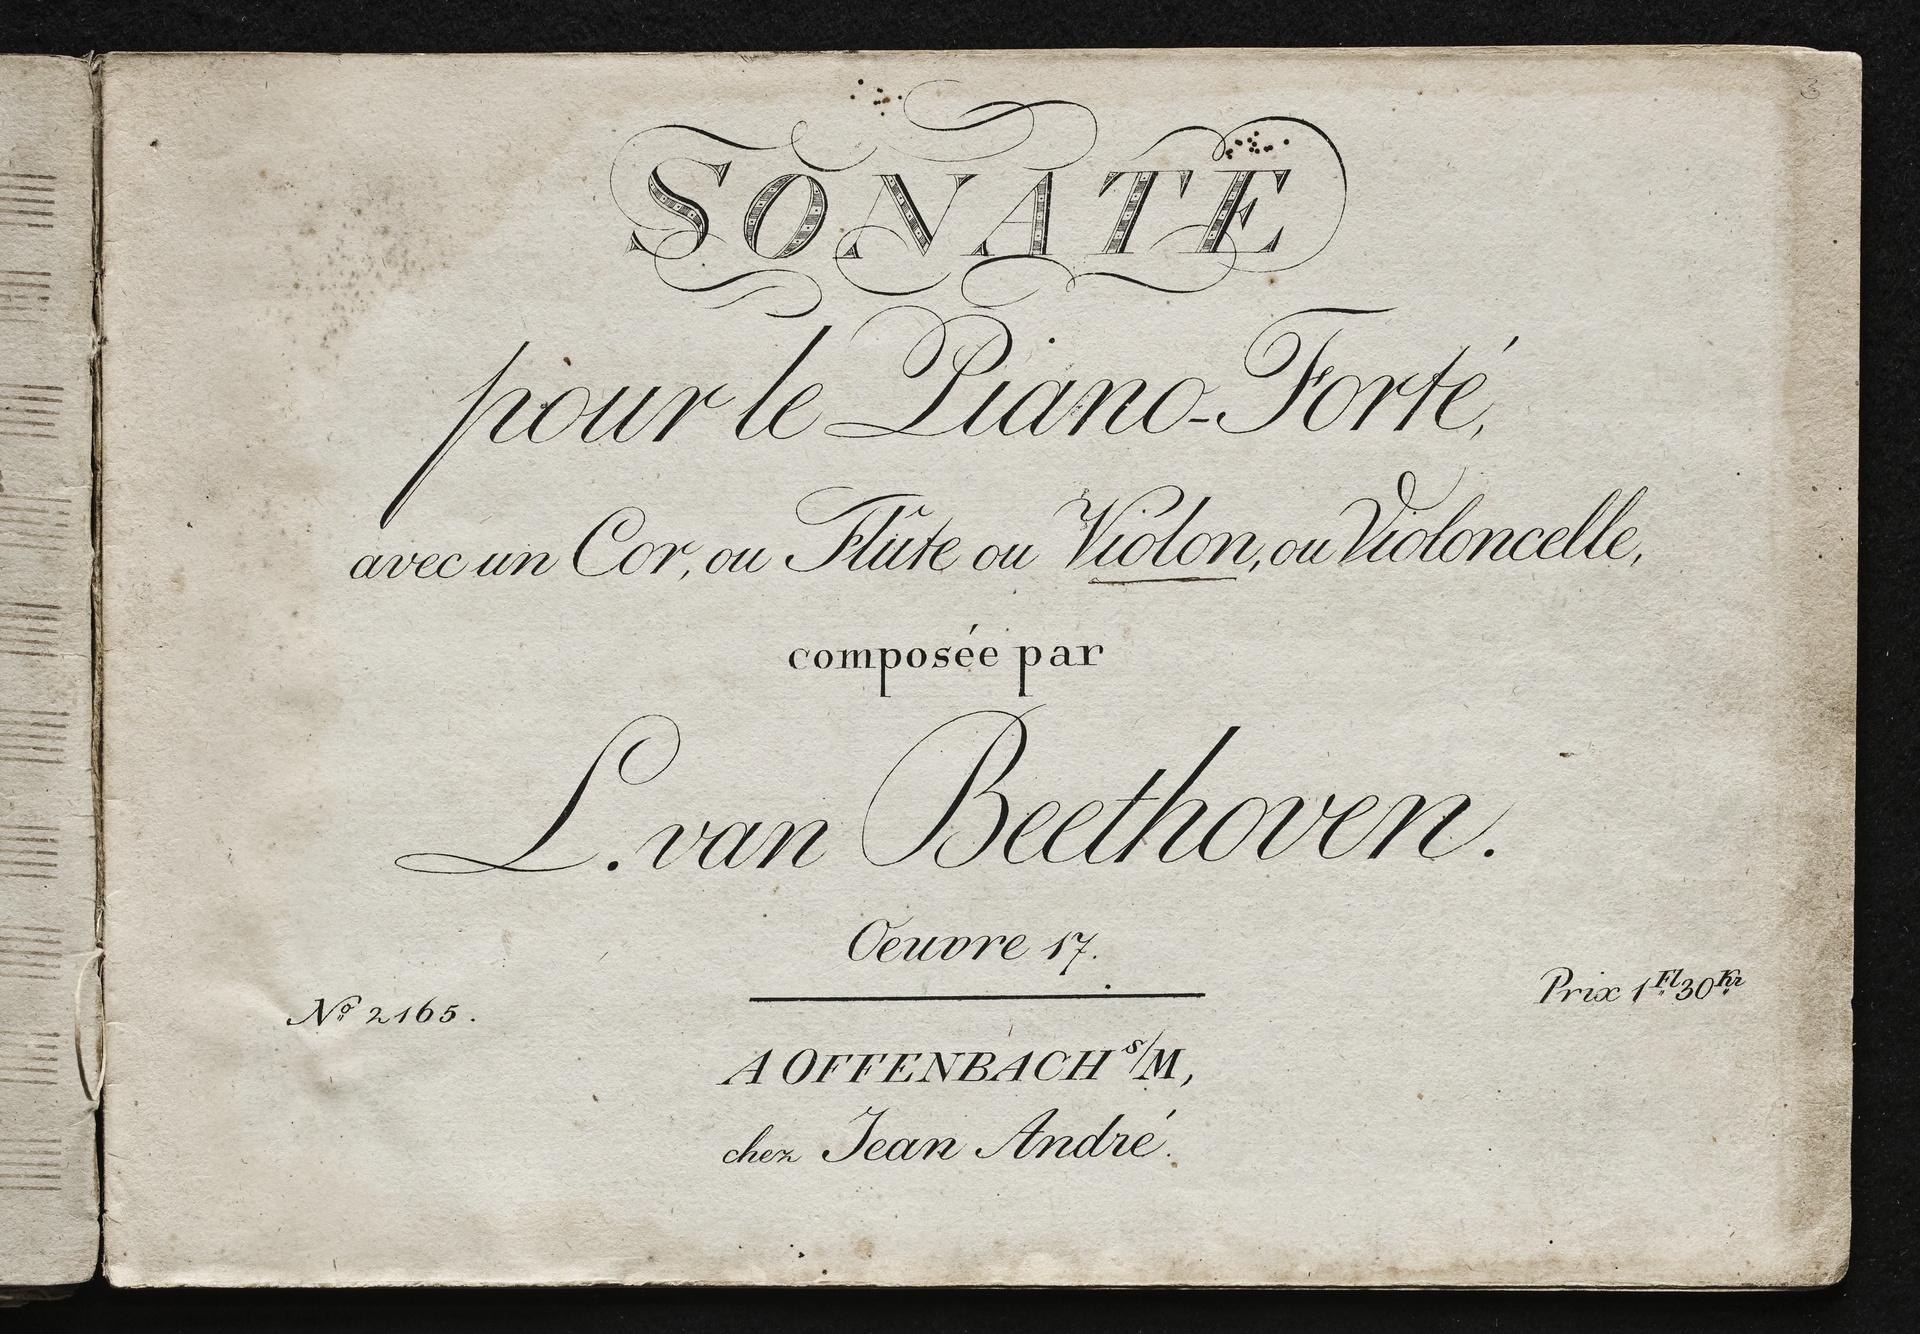 SONATE
pour le Piano-Forté,
avec un Cor, ou Flûte ou Violon, ou Violoncelle,
composée par
L. van Beethoven.
Oeuvre 17.
No 2165.
Prix 1 Fl 30 Kr
A OFFENBACH s/M,
chez Jean André.
3